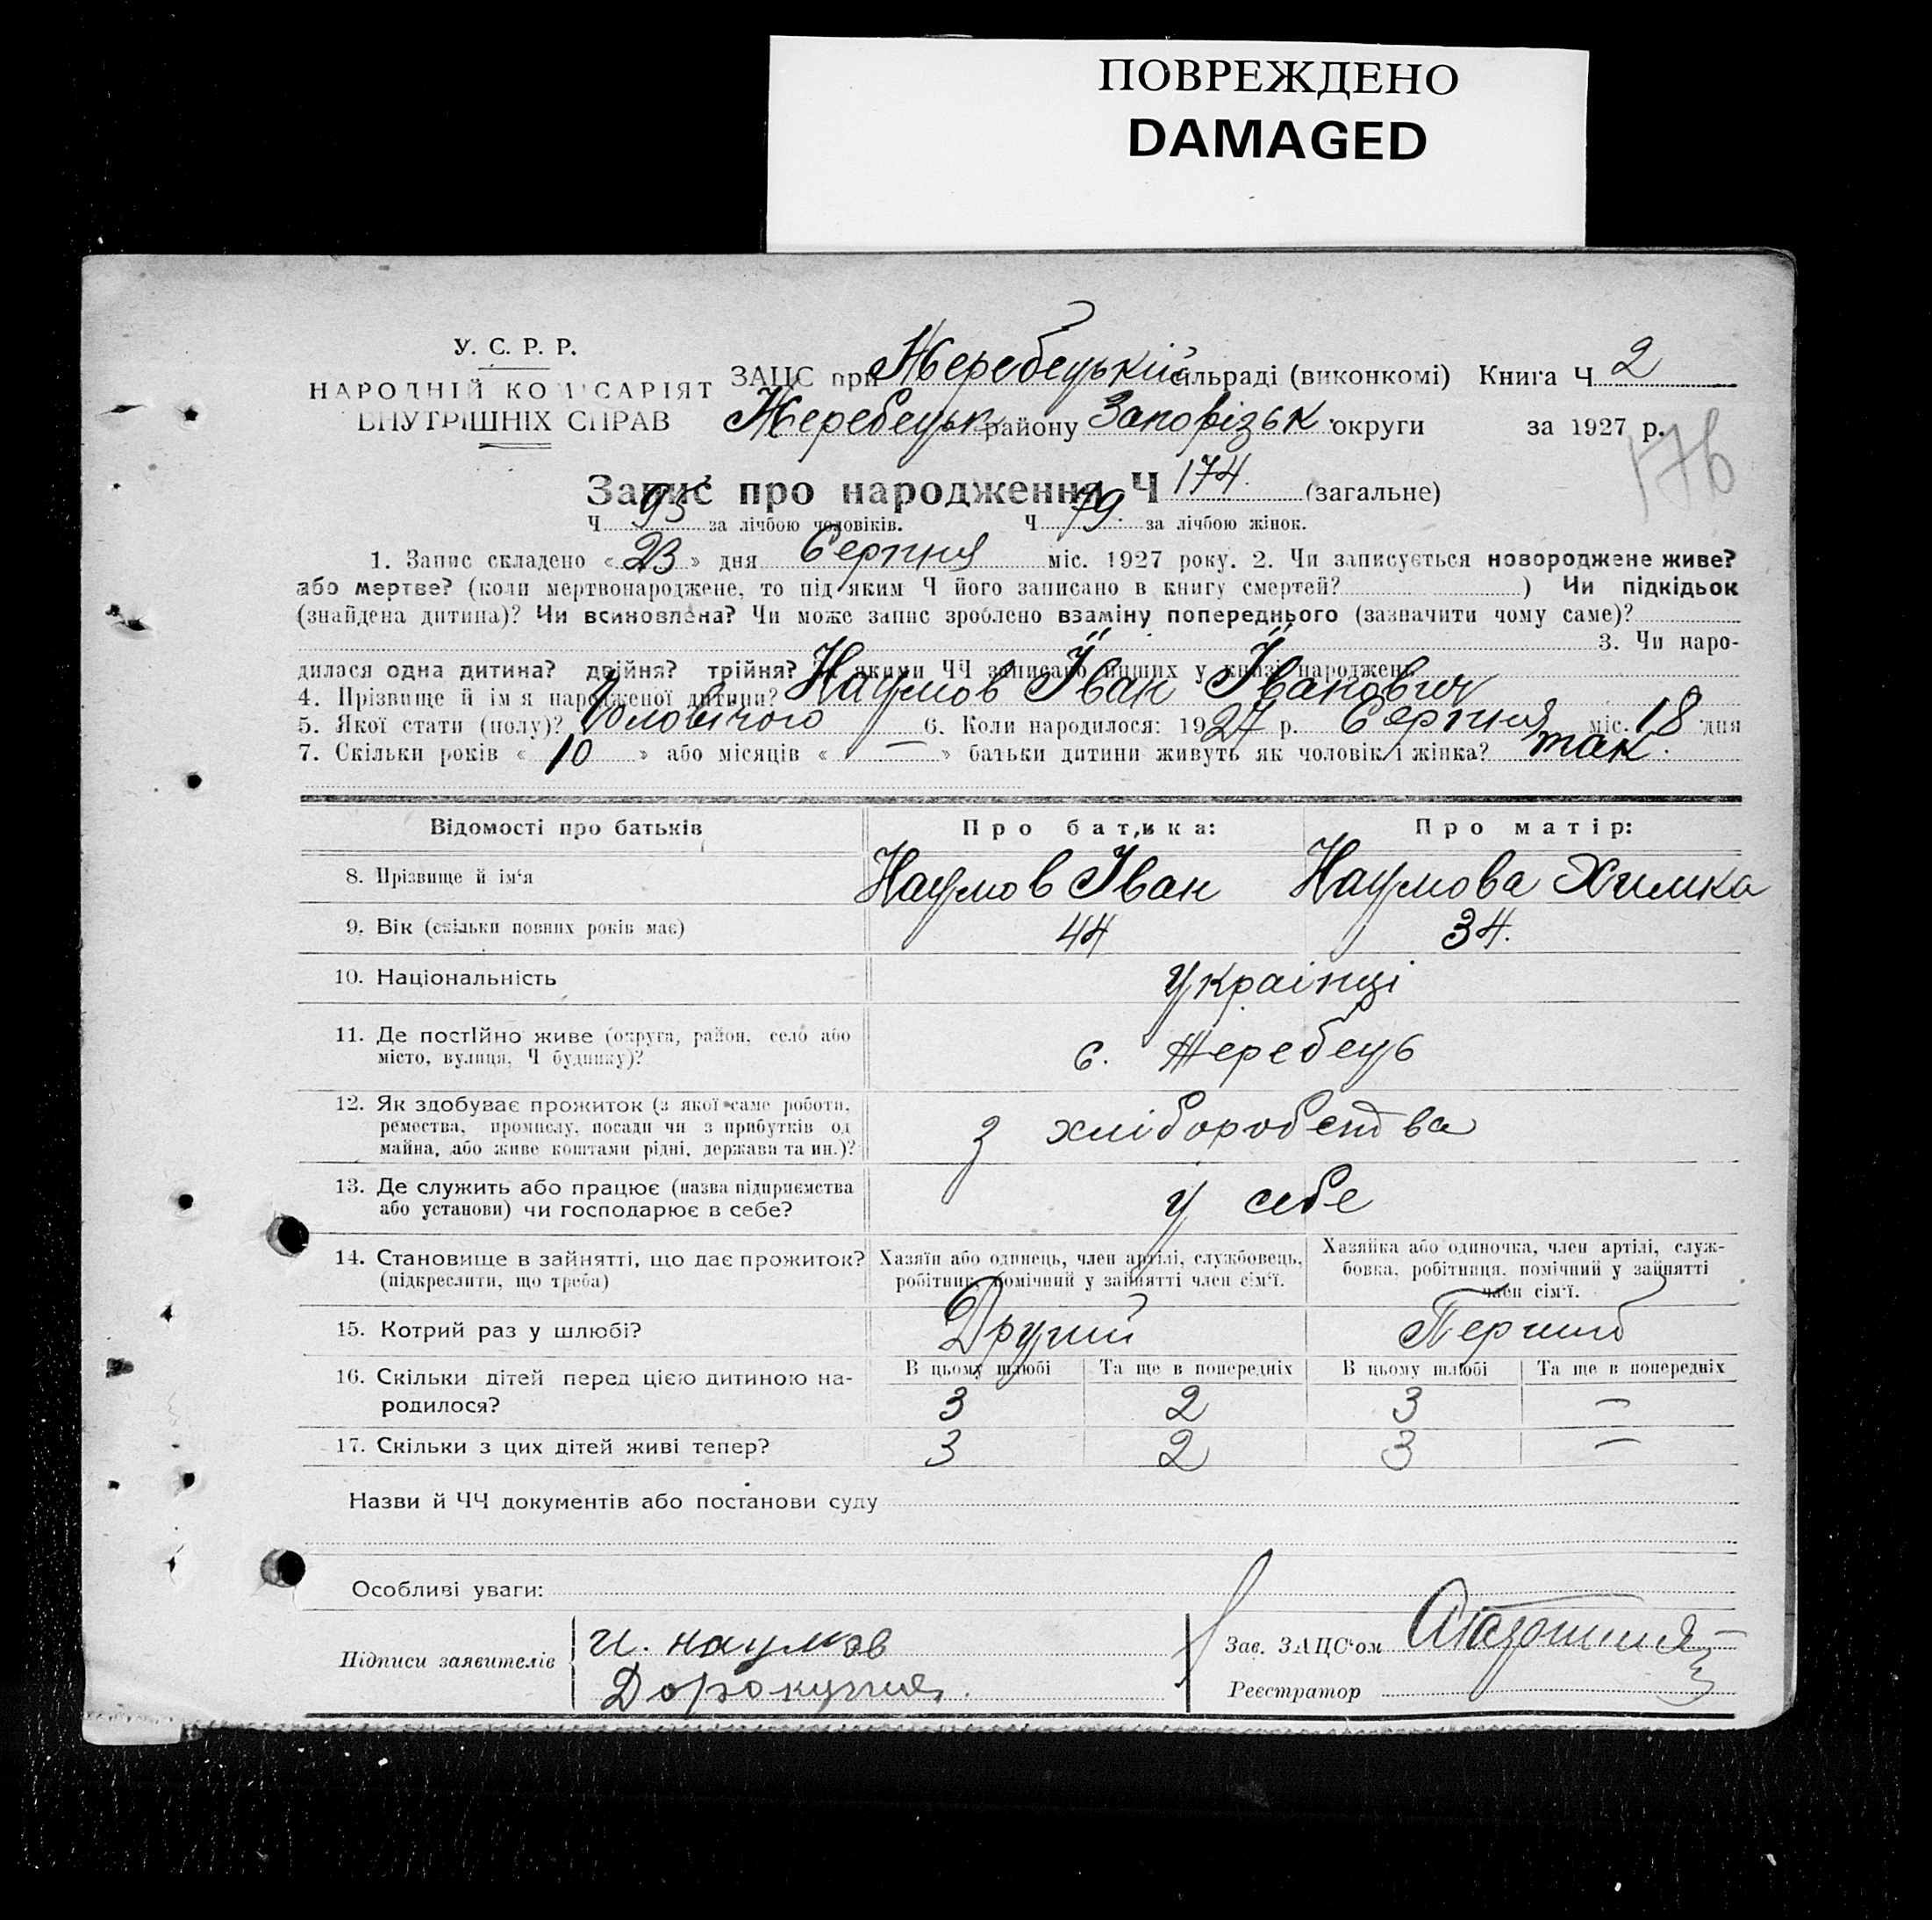 ПОВРЕЖДЕНО
DAMAGED
У. С. Р. Р.
НАРОДНІЙ КОМІСАРІЯТ
ВНУТРІШНІХ СПРАВ
ЗАЦС при Жеребецькій сільраді (виконкомі) Книга Ч 2
Жеребецьк району Запорізьк. округи за 1927 р.
176
Запис про народження Ч 174. (загальне)
Ч 95 за лічбою чоловіків. Ч 79. за лічбою жінок.
1. Запис складено « 23 » дня Серпня міс. 1927 року. 2. Чи записується новороджене живе?
або мертве? (коли мертвонароджене, то під яким Ч його записано в книгу смертей? ) Чи підкідьок
(знайдена дитина)? Чи всиновлена? Чи може запис зроблено взаміну попереднього (зазначити чому саме)?
3. Чи наро-
дилася одна дитина? двійня? трійня? якими ЧЧ записано инших у книзі народжень
4. Прізвище й ім я народженої дитини? Наумов Іван Іванович
5. Якої стати (полу)? Чоловічого 6. Коли народилося: 1927 р. Серпня міс. 18 дня
7. Скільки років « 10 » або місяців « — » батьки дитини живуть як чоловік і жінка? так.
Відомості про батьків Про батька: Про матір:
8. Прізвище й ім‘я Наумов Іван Наумова Химка
9. Вік (скільки повних років має) 44 34.
10. Національність Українці
11. Де постійно живе (округа, район, село або
місто, вулиця, Ч будинку)? с. Жеребець
12. Як здобуває прожиток (з якої саме роботи,
ремества, промислу, посади чи з прибутків од
майна, або живе коштами рідні, держави та ин.)? з хліборобства
13. Де служить або працює (назва підприємства
або установи) чи господарює в себе? у себе
14. Становище в зайнятті, що дає прожиток?
(підкреслити, що треба)
Хазяїн або одинець, член артілі, службовець,
робітник, помічний у зайнятті член сім‘ї.
Хазяйка або одиночка, член артілі, служ-
бовка, робітниця, помічний у зайнятті
член сім‘ї.
15. Котрий раз у шлюбі? Другий Перший
В цьому шлюбі Та ще в попередніх В цьому шлюбі Та ще в попередніх
16. Скільки дітей перед цією дитиною на-
родилося? 3 2 3 —
17. Скільки з цих дітей живі тепер? 3 2 3 —
Назви й ЧЧ документів або постанови суду
Особливі уваги:
Підписи заявителів И. наумов
Зав. ЗАЦС‘ом
Реєстратор